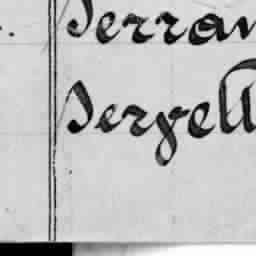 Serran
Seryell